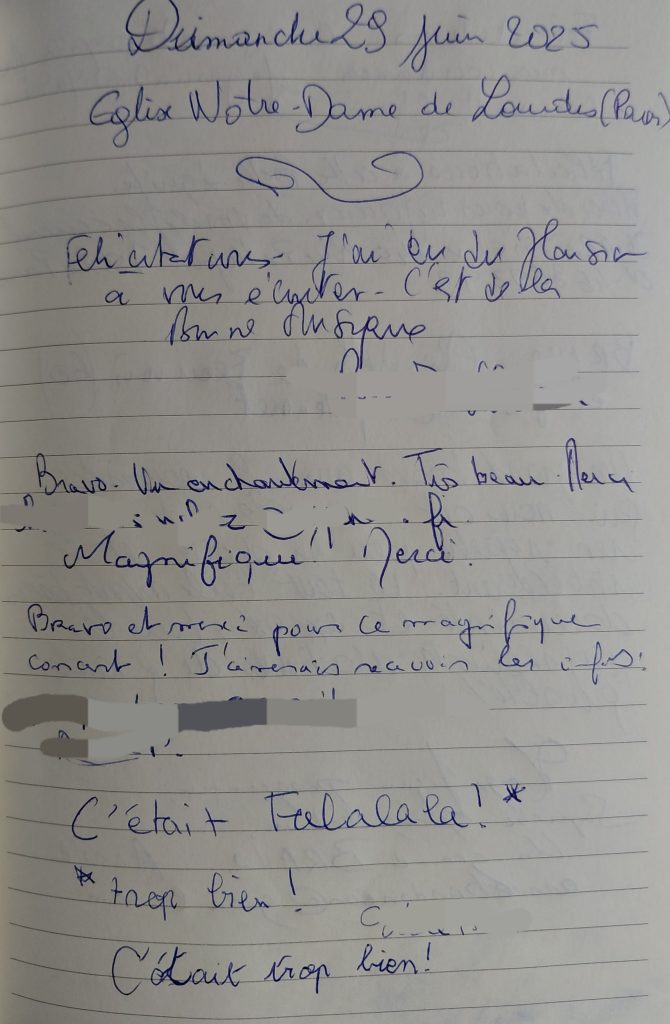 Dimanche 29 juin 2025
Eglise Notre-Dame de Lourdes (Paris)
Félicitations - J'ai eu du plaisir
a vous écouter - C'est de la
Bonne Musique
Bravo. Un enchantement. Très beau. Merci
.fr
Magnifique!! Merci.
Bravo et merci pour ce magnifique
concert ! J'aimerais recevoir les infos:
C'était Falalala! *
* trop bien !
C'était trop bien!